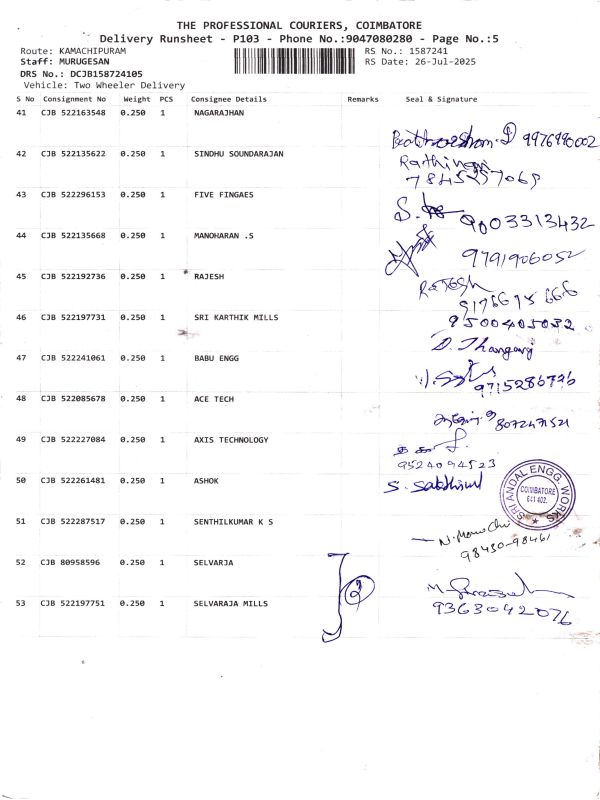 THE PROFESSIONAL COURIERS, COIMBATORE
Delivery Runsheet - P103 - Phone No.:9047080280 - Page No.:5
Route: KAMACHIPURAM RS No.: 1587241
Staff: MURUGESAN RS Date: 26-Jul-2025
DRS No.: DCJB158724105
Vehicle: Two Wheeler Delivery
S No Consignment No Weight PCS Consignee Details Remarks Seal & Signature
41 CJB 522163548 0.250 1 NAGARAJHAN
9976990002
42 CJB 522135622 0.250 1 SINDHU SOUNDARAJAN
43 CJB 522296153 0.250 1 FIVE FINGAES
9003313432
44 CJB 522135668 0.250 1 MANOHARAN .S
9791906052
45 CJB 522192736 0.250 1 RAJESH
Rajesh
46 CJB 522197731 0.250 1 SRI KARTHIK MILLS
9500405032
D. Thangaraj
47 CJB 522241061 0.250 1 BABU ENGG
9715286726
48 CJB 522085678 0.250 1 ACE TECH
8072471521
49 CJB 522227084 0.250 1 AXIS TECHNOLOGY
9524094523
50 CJB 522261481 0.250 1 ASHOK
S. Sakthivel
SRI ANDAL ENGG. WORKS
COIMBATORE
641 402.
51 CJB 522287517 0.250 1 SENTHILKUMAR K S
98430-98461
52 CJB 80958596 0.250 1 SELVARJA
2
53 CJB 522197751 0.250 1 SELVARAJA MILLS
9363042076